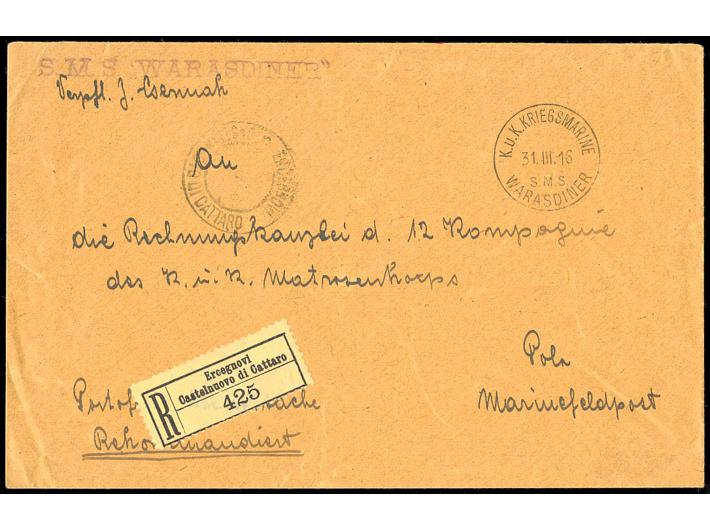 S.M.S. „WARASDINER"
Verpfl. J. Csermak
K.u.K. KRIEGSMARINE
31.III.16
S.M.S.
WARASDINER
DI CATTARO
An
die Rechnungskanzlei d. 12 Kompagnie
des K. u. K. Matrosenkorps
Pola
Marinefeldpost
R
Ercegnovi
Castelnuovo di Cattaro
425
Portof
sache
Rekommandiert